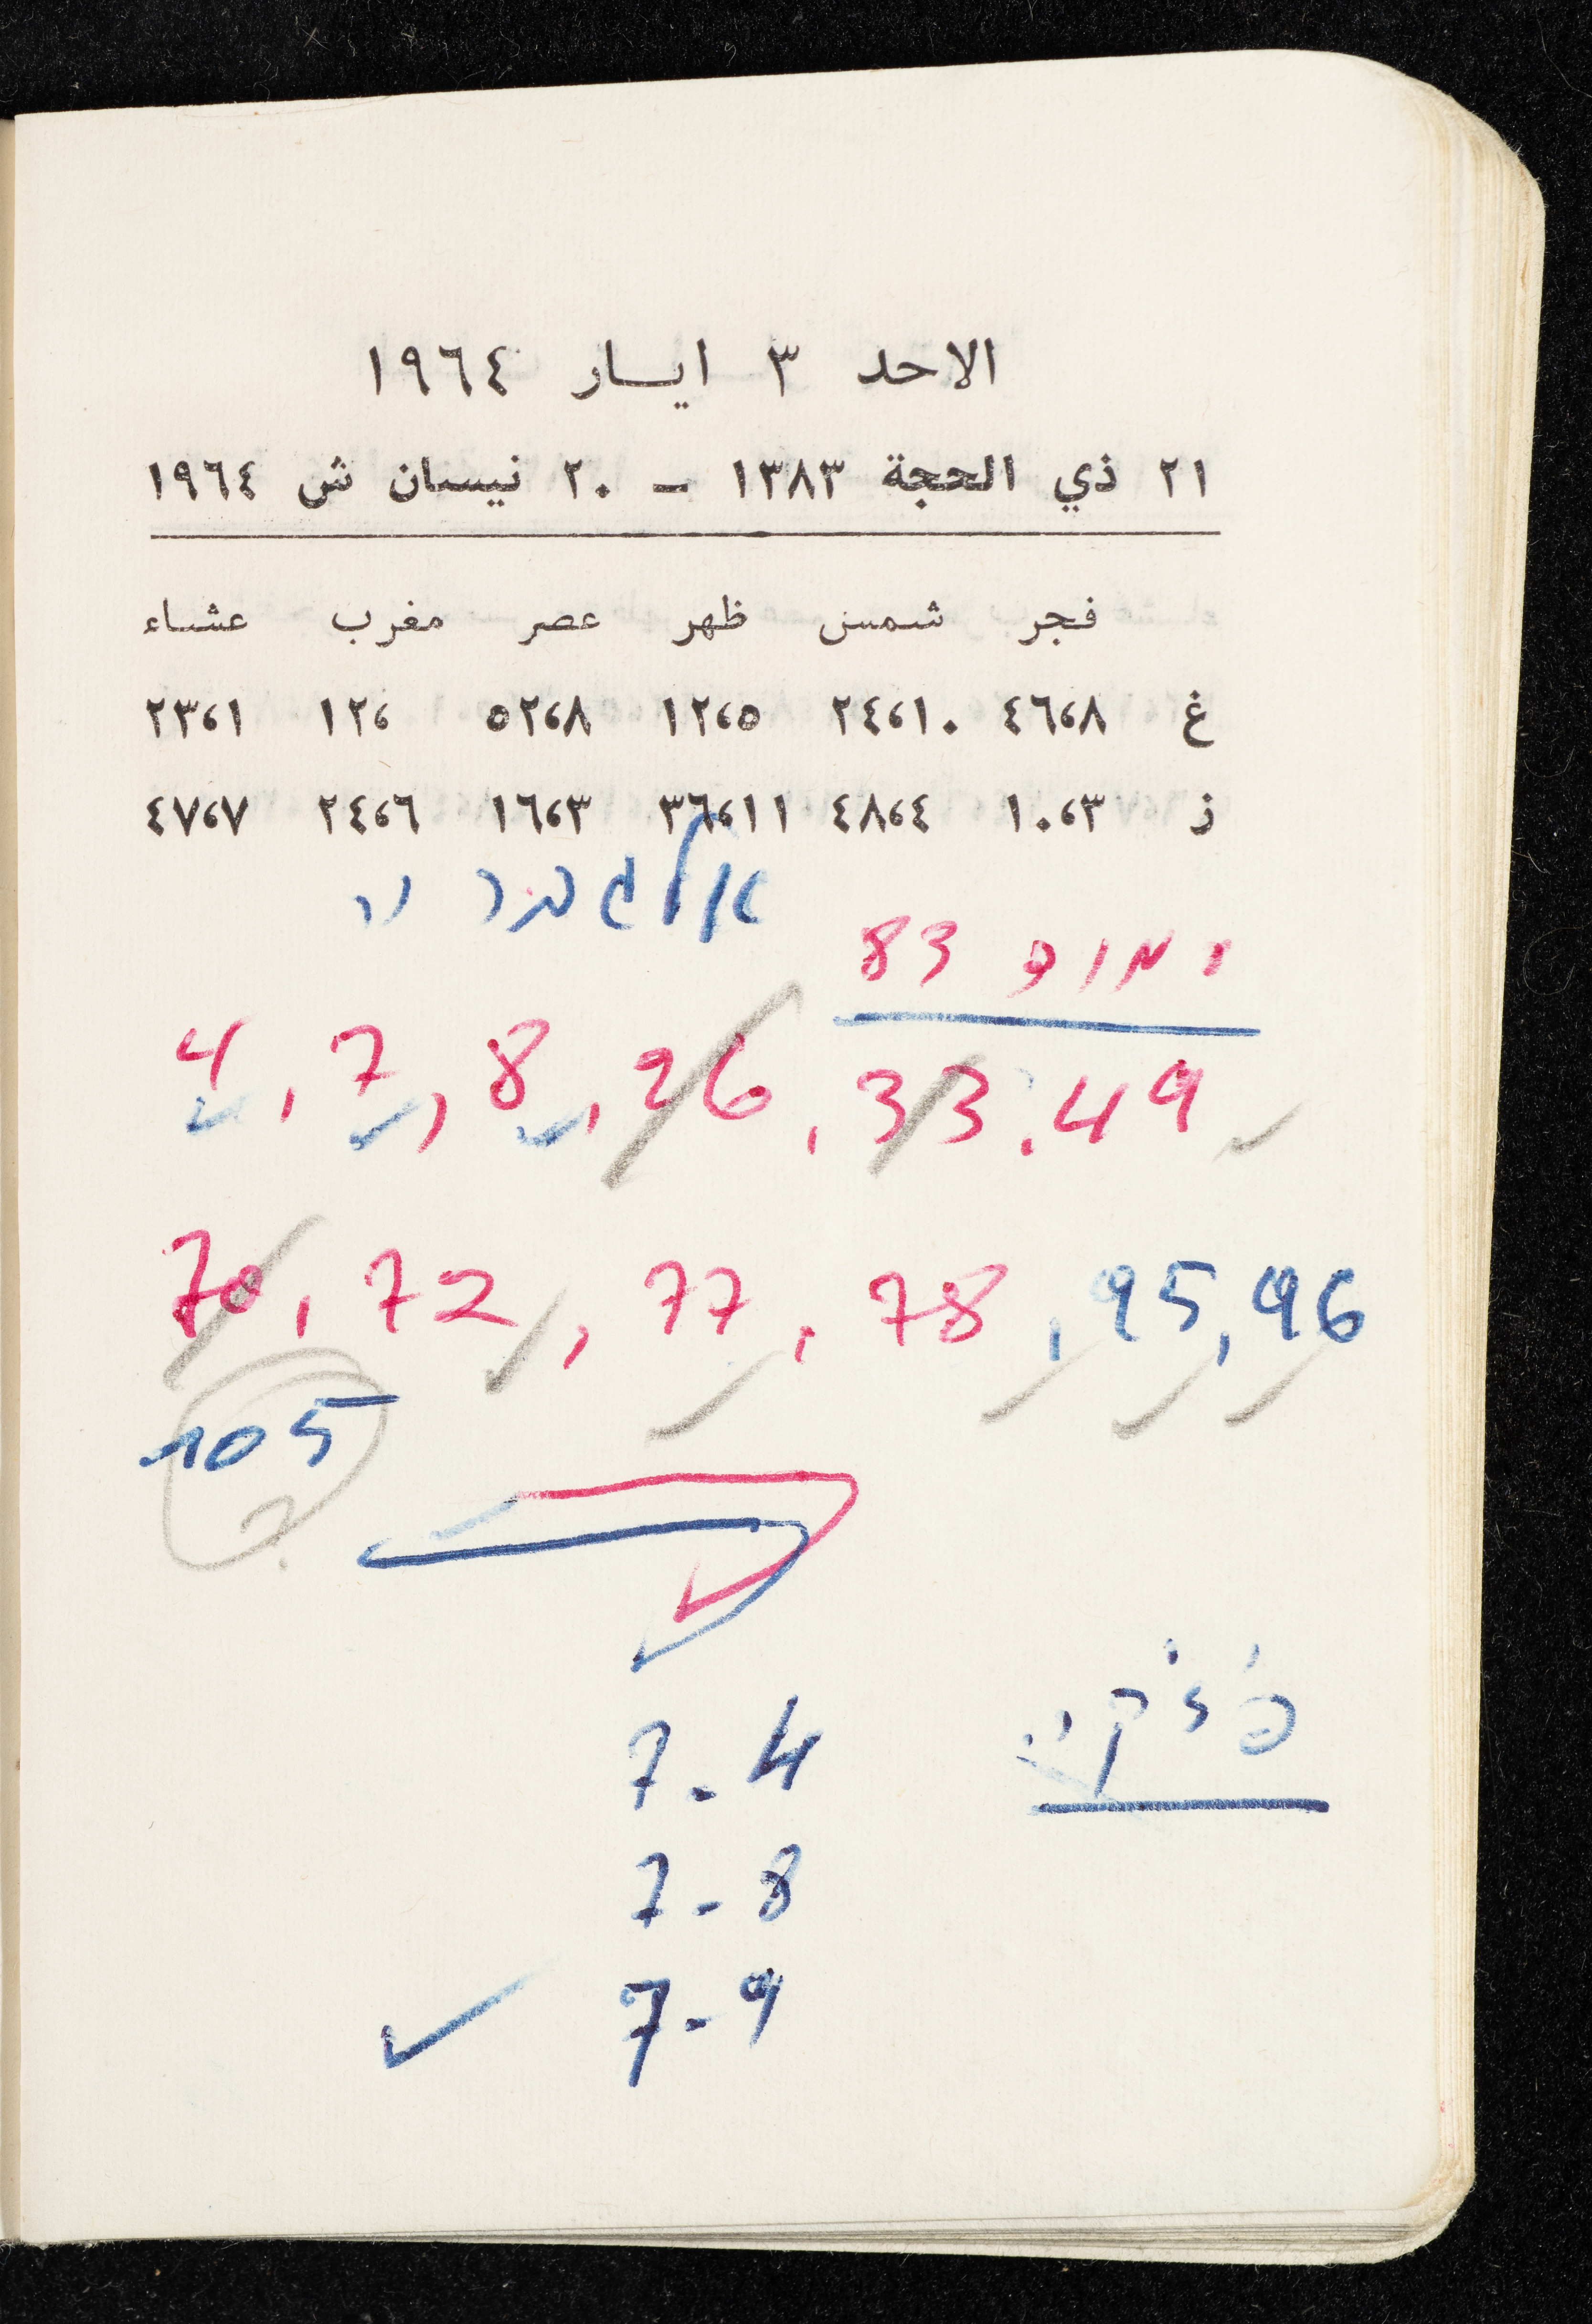 الاحد ٣ ايـار ١٩٦٤
٢١ ذي الحجة ١٣٨٣ ــ ٢٠ نيسان ش ١٩٦٤
فجر شمس ظهر عصر مغرب عشاء
غ ٤٦،٨ ٢٤،١٠ ١٢،٥ ٥٢،٨ ١٢، ٢٣،١
ز ١٠،٣ ٤٨،٤ ٣٦،١١ ١٦،٣ ٢٤،٦ ٤٧،٧
83
4, 7, 8, 26, 33, 49
70, 72, 77, 78, 95, 96
105
?
7-4
7-8
7-9